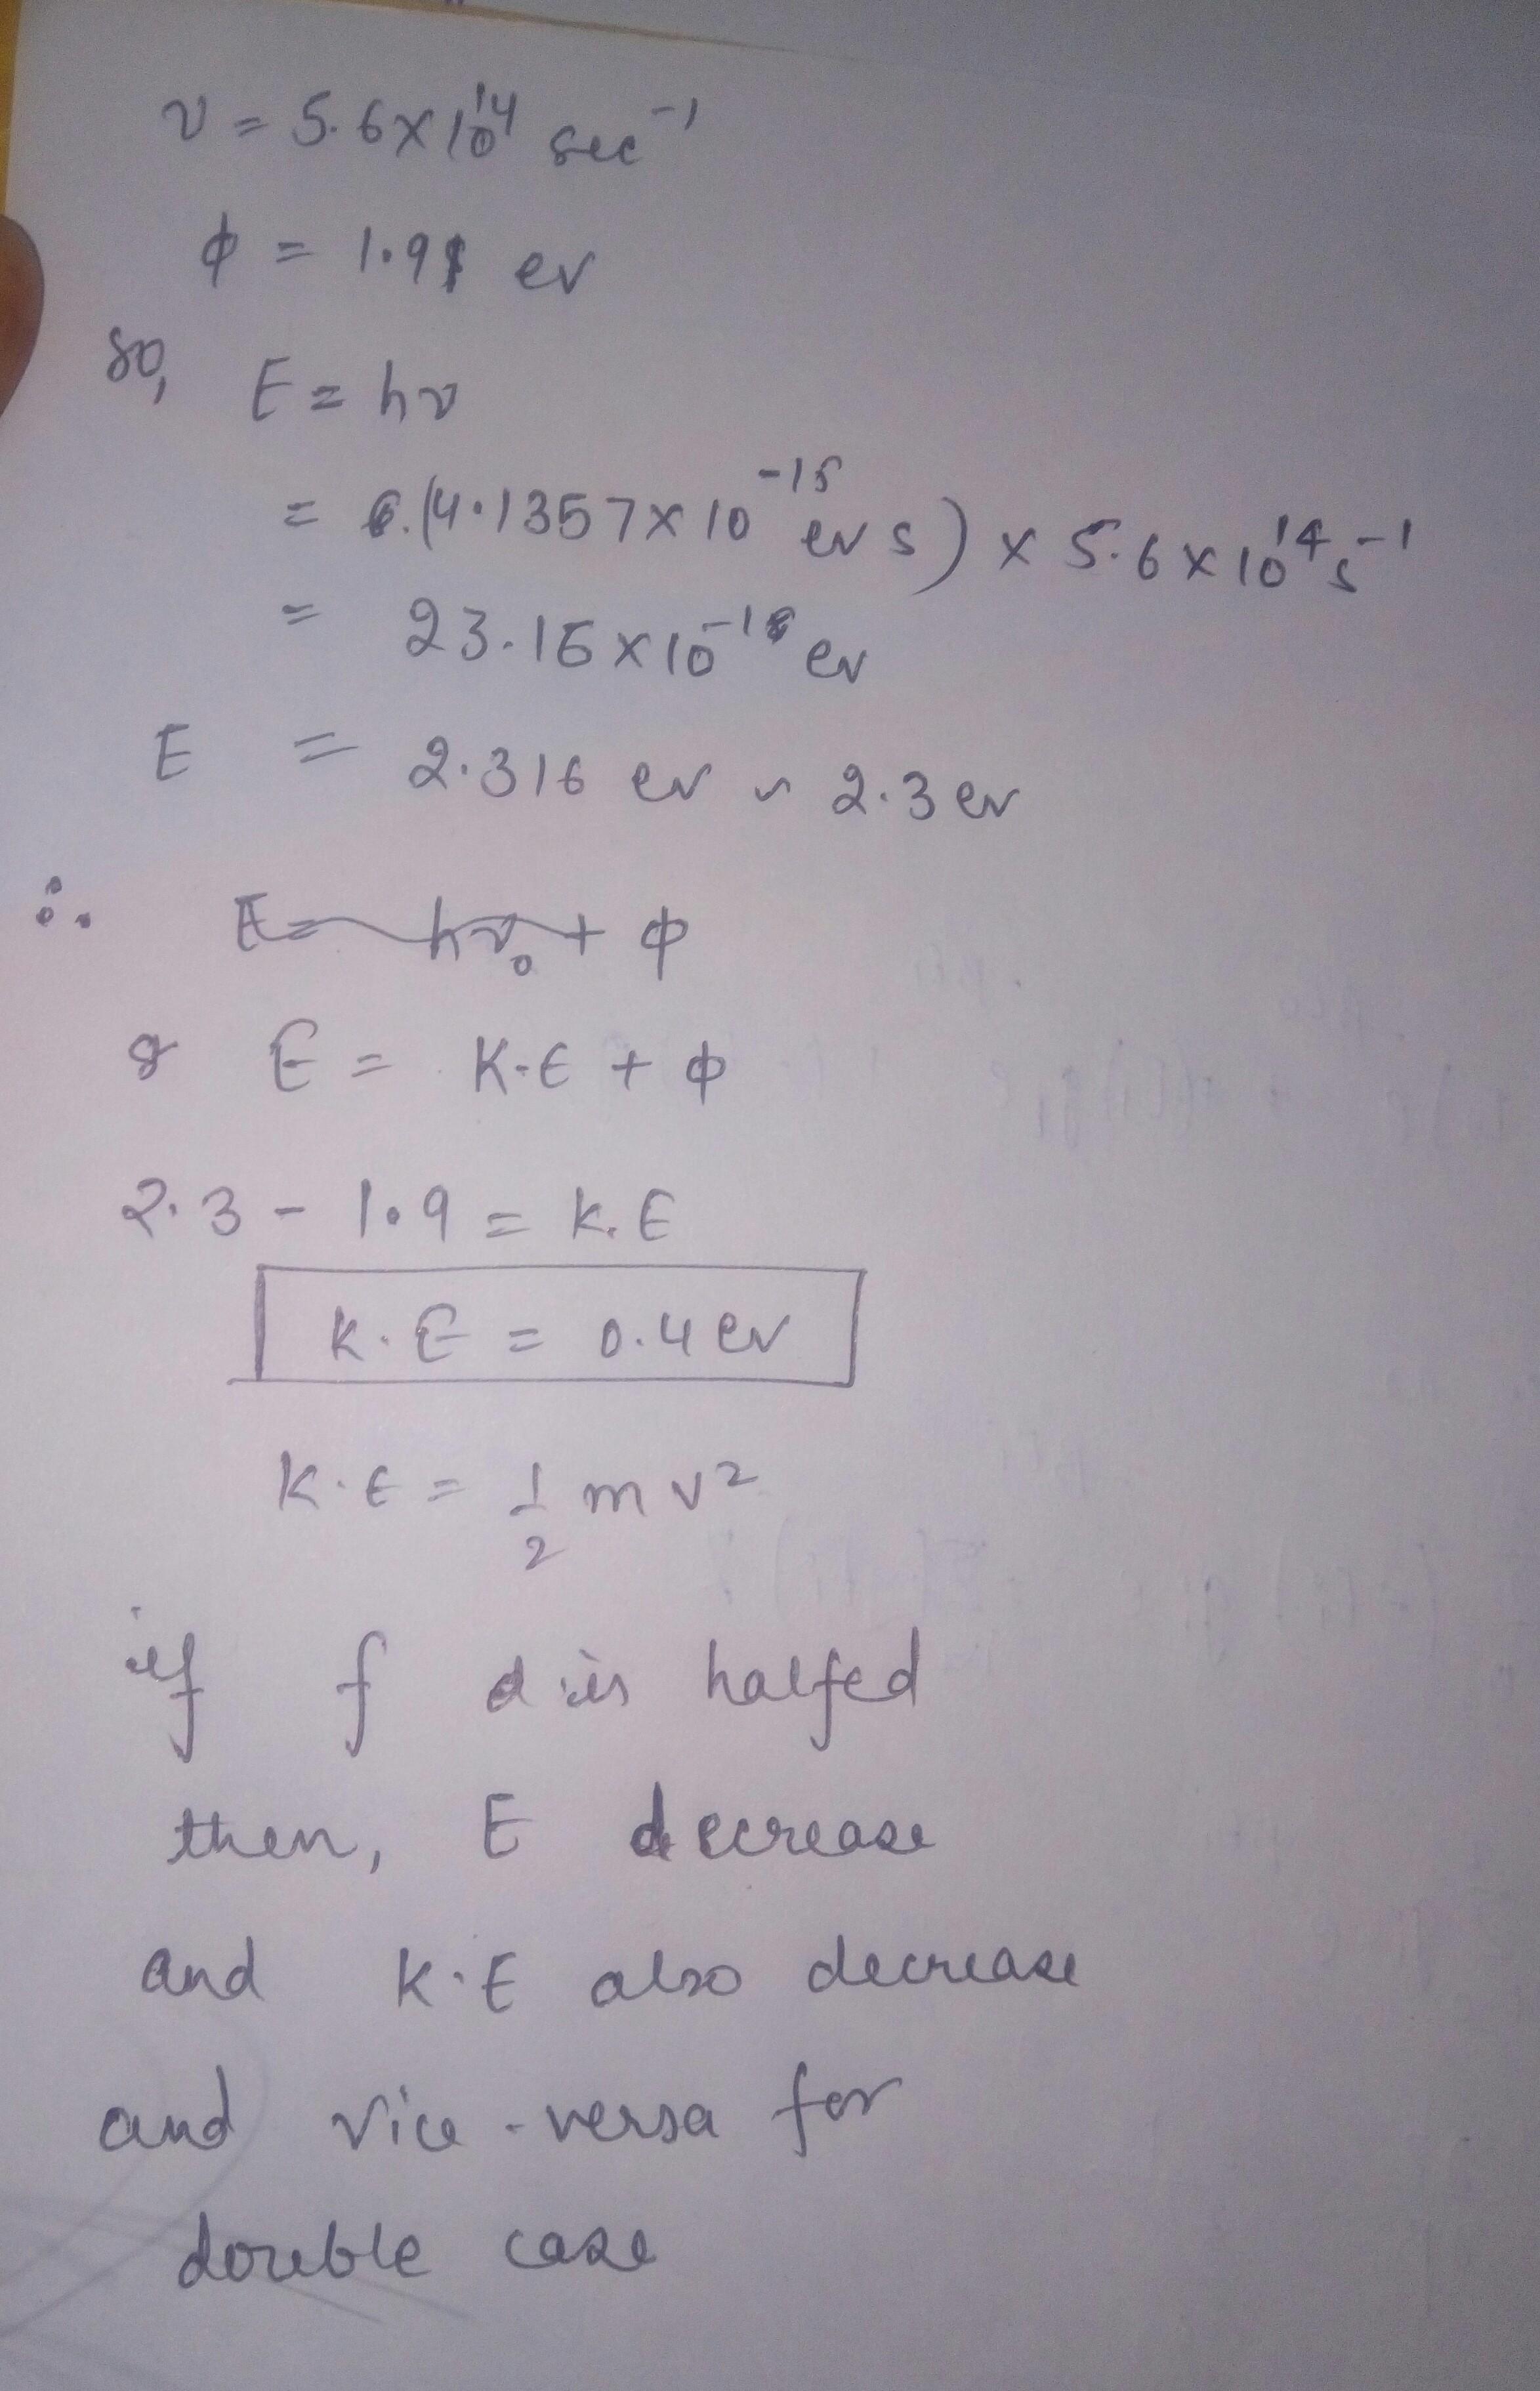 ν = 5.6 × 10¹⁴ sec⁻¹
ϕ = 1.9 ev
so, E = hν
= (4.1357 × 10⁻¹⁵ ev s) × 5.6 × 10¹⁴ s⁻¹
= 23.16 × 10⁻¹ ev
E = 2.316 ev ~ 2.3 ev
∴ E = hν₀ + ϕ
& E = K.E + ϕ
2.3 - 1.9 = K.E
K.E = 0.4 ev
K.E = 1/2 mv²
if f is halfed
then, E decrease
and K.E also decrease
and vice-versa for
double case